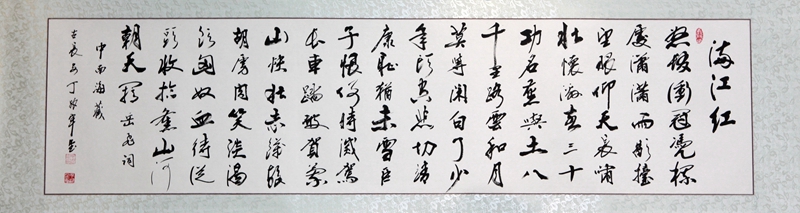 满江红
怒发冲冠凭栏
处潇潇雨歇抬
望眼仰天长啸
壮怀激烈三十
功名尘与土八
千里路云和月
莫等闲白了少
年头空悲切靖
康耻犹未雪臣
子恨何时灭驾
长车踏破贺兰
山缺壮志饥餐
胡虏肉笑谈渴
饮匈奴血待从
头收拾旧山河
朝天阙岳飞词